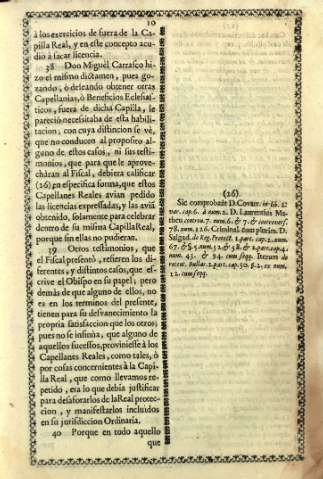 10
à los exercicios de fuera de la Ca-
pilla Real, y en este concepto acu-
diò à sacar licencia.
38 Don Miguel Carrasco hi-
zo el mismo dictamen, pues go-
zando, ò deseando obtener otras
Capellanias, ò Beneficios Eclesias-
ticos, fuera de dicha Capilla, le
pareciò necesitaba de esta habili-
tacion, con cuya distincion se vè,
que no conducen al proposito al-
guno de estos casos, ni sus testi-
monios, que para que le aprove-
chàran al Fiscal, debiera calificar
(26) en especifica forma, que estos
Capellanes Reales avian pedido
las licencias expressadas, y las aviã
obtenido, solamente para celebrar
dentro de su misma Capilla Real,
porque sin ellas no pudieran.
39 Otros testimonios, que
el Fiscal presentò, refieren los di-
ferentes, y distintos casos, que es-
crive el Obispo en su papel; pero
demàs de que alguno de ellos, no
es en los terminos del presente,
tienen para su desvanecimiento la
propria satisfaccion que los otros;
pues no se insinùa, que alguno de
aquellos sucessos, proviniesse à los
Capellanes Reales, como tales, ò
por cosas concernientes à la Capi-
lla Real, que como llevamos re-
petido, era lo que debia justificar
para desaforarlos de la Real protec-
cion, y manifestarlos incluìdos
en su jurisdiccion Ordinaria.
40 Porque en todo aquello
que
(26)
Sic comprobant D. Covarr. in lib. 2.
var. cap. 6. à num. 2. D. Laurentius Ma-
theu controv. 7. num. 6. & 7. & controvers.
78. num. 126. Criminal. cum plurim. D.
Salgad. de Reg. Protect. 1. part. cap. 2. num.
67. & 5. num. 32. & 38. & 2. part. cap. 4.
num. 43. & 94. cum seqq. Iterum de
retent. Bullar. 2. part. cap. 30. §. 2. ex num.
12. cum seqq.